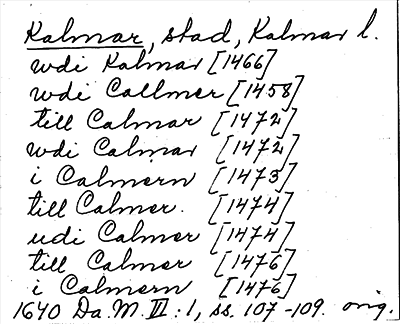 Kalmar, stad, Kalmar l.
wdi Kalmar [1466]
wdi Callmer [1458]
till Calmar [1472]
wdi Calmar [1472]
i Calmern [1473]
till Calmer. [1474]
udi Calmer [1474]
till Calmer [1476]
i Calmern [1476]
1640 Da. M. III : 1, ss. 107-109. orig.